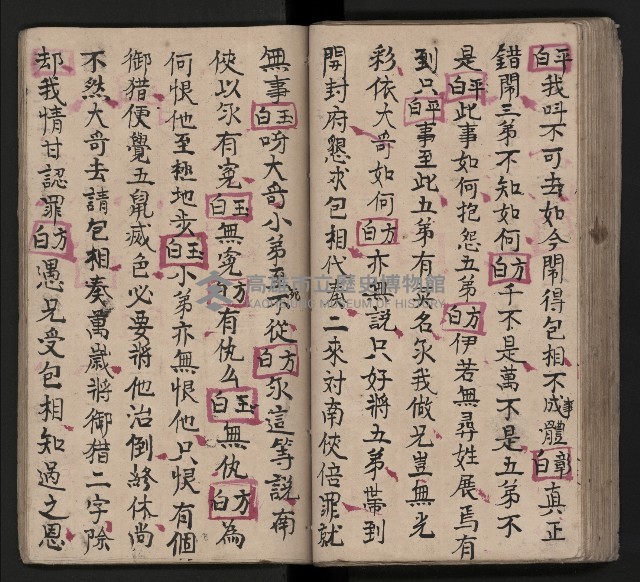 平白我呌不可去如今鬧得包相不成體事章白真正
錯鬧三弟不知如何方白千不是萬不是五弟不
是平白此事如何抱怨五弟方白伊若無尋姓展焉有
到只平白事至此五弟有
名尔我做兄豈無光
彩依大哥如何方白亦無說只好將五弟帶到
開封府懇求包相代
二來对南俠倍罪就
無事玉白呀大哥小弟
死不從方白尔這等說南
俠以尔有寃玉白無寃方白有仇么玉白無仇方白為
何恨他至極地步玉白小弟亦無恨他只恨有個
御猫便覺五鼠滅色必要將他治倒終休尚
不然大哥去請包相奏萬歲將御猫二字除
却我情甘認罪方白愚兄受包相知遇之恩
高雄市立歷史博物館
KAOHSIUNG MUSEUM OF HISTORY